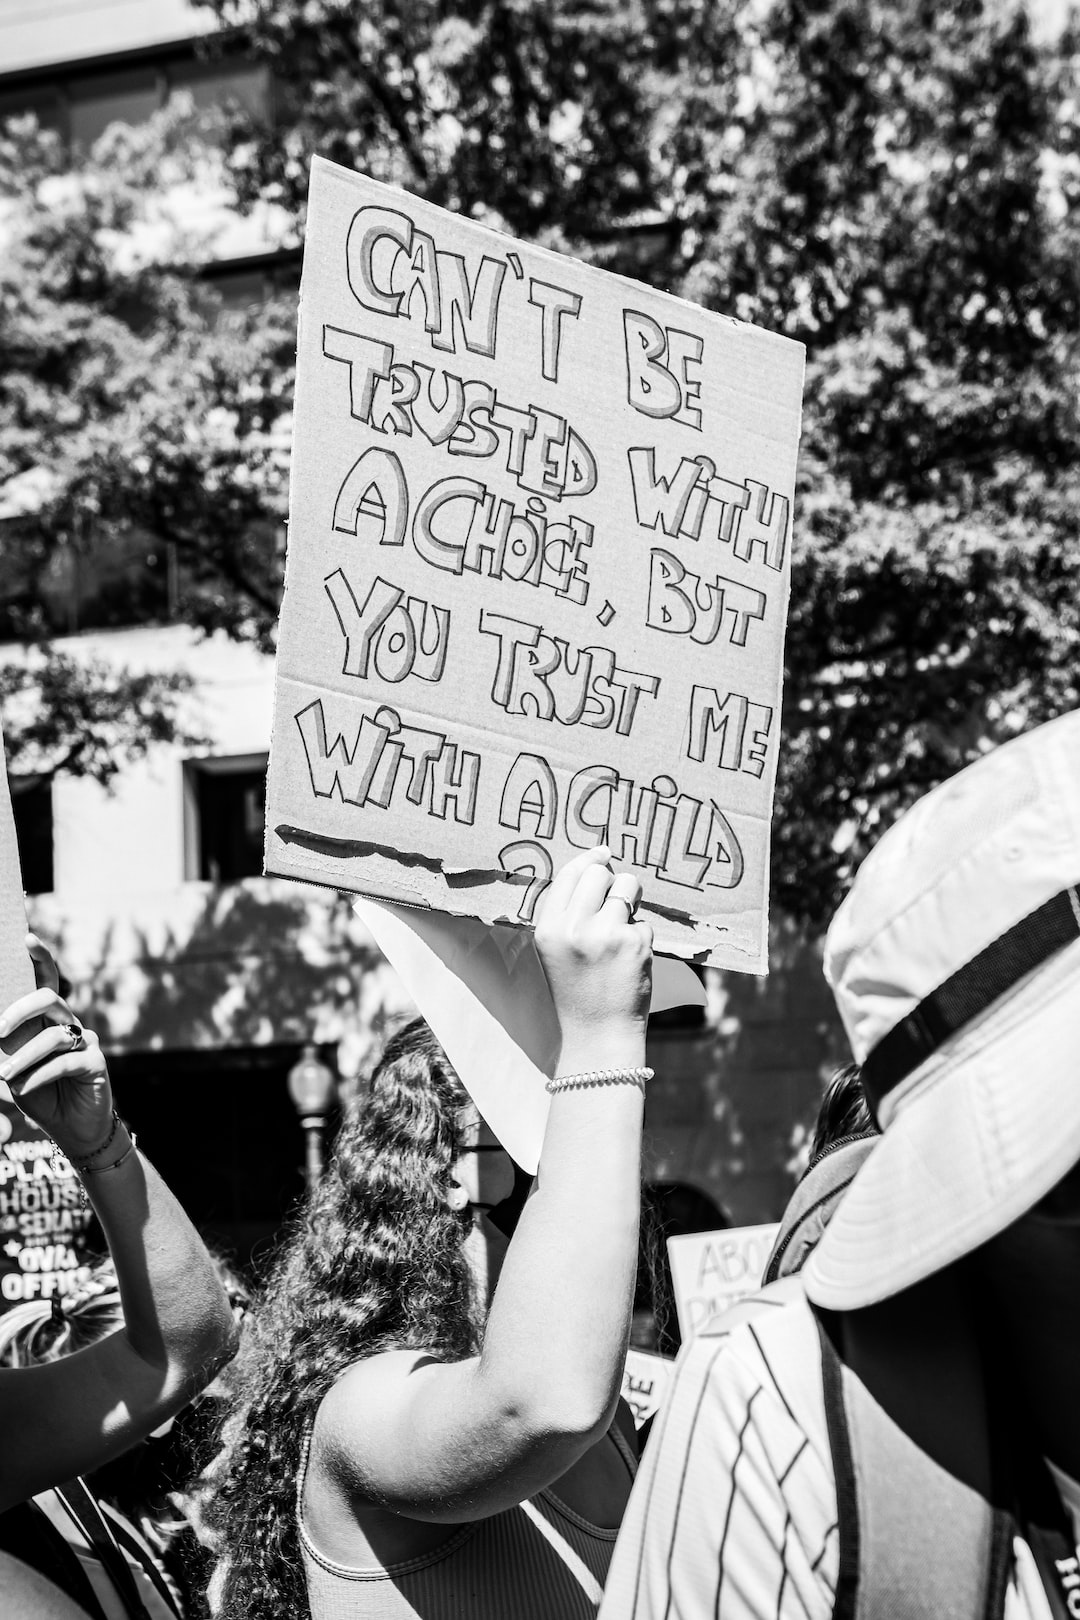 CAN'T BE
TRUSTED WITH
A CHOiCE, BUT
YOU TRUST ME
WiTH A CHiLD
?
PLAC
HOUS
SENAT
OVAL
OFFIC
ABO
RE
HO